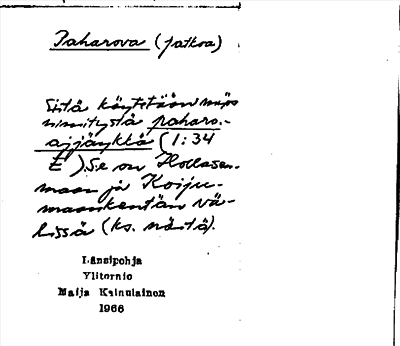 Paharova (jatkoa)
Siitä käytetään myös
nimitystä paharo-
äijänkkä (1:34
E). Se on Hollasen-
maan ja Koiju-
maankentän vä-
lissä (ks. näitä).
Länsipohja
Ylitornio
Maija Kainulainen
1966